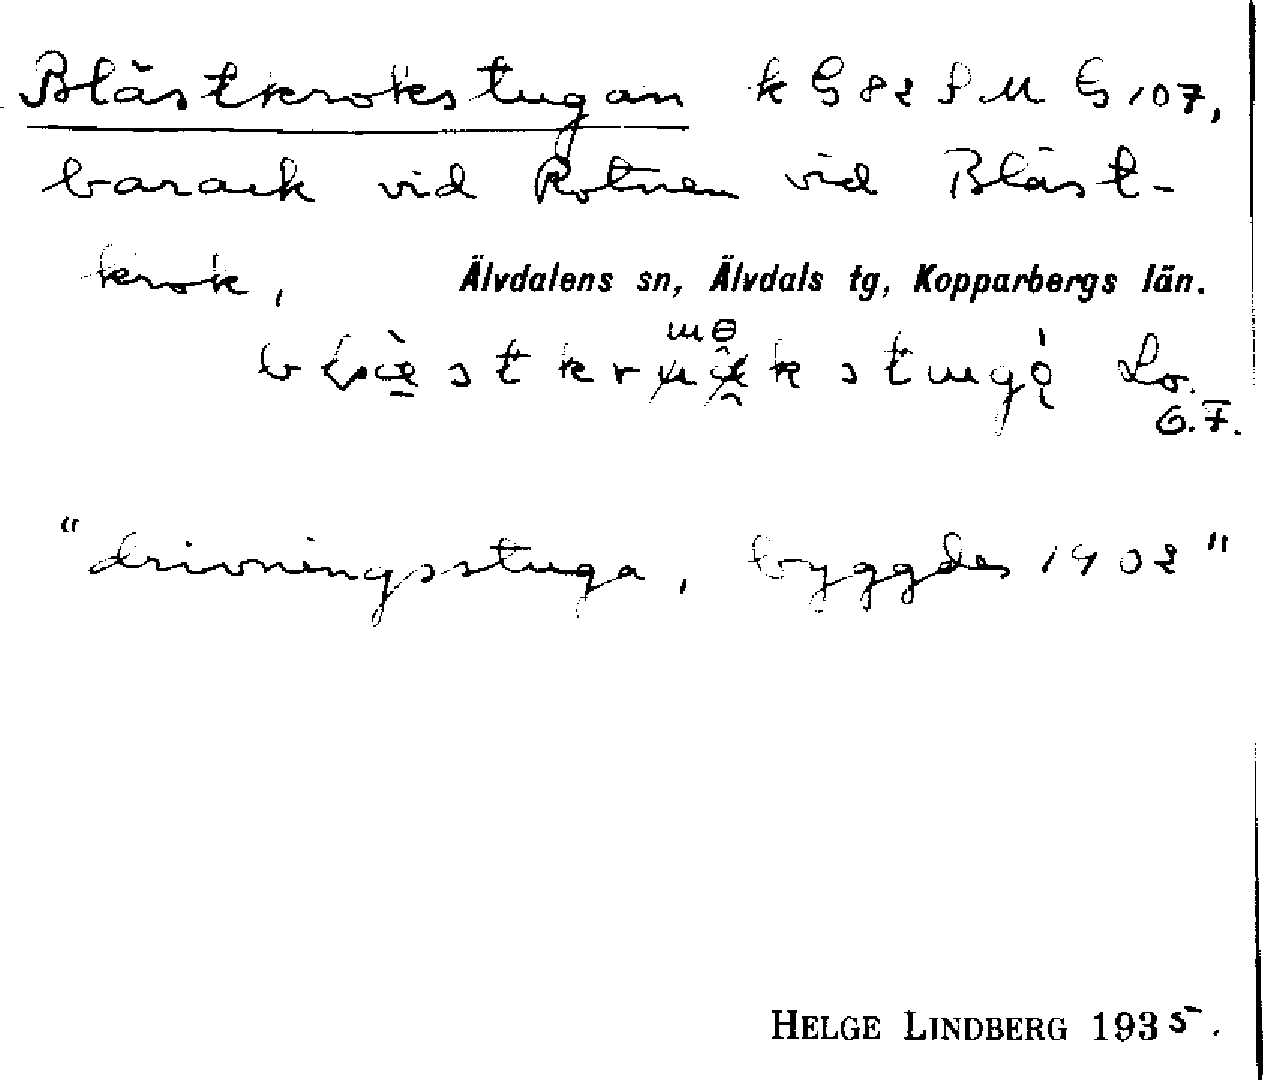 Blästkrokstugan k G 82 S M G 107,
barack vid Rotnen vid Bläst-
krok, Älvdalens sn, Älvdals tg, Kopparbergs län.
Lo.
G. F.
"drivningsstuga, byggdes 1902"
HELGE LINDBERG 1935.